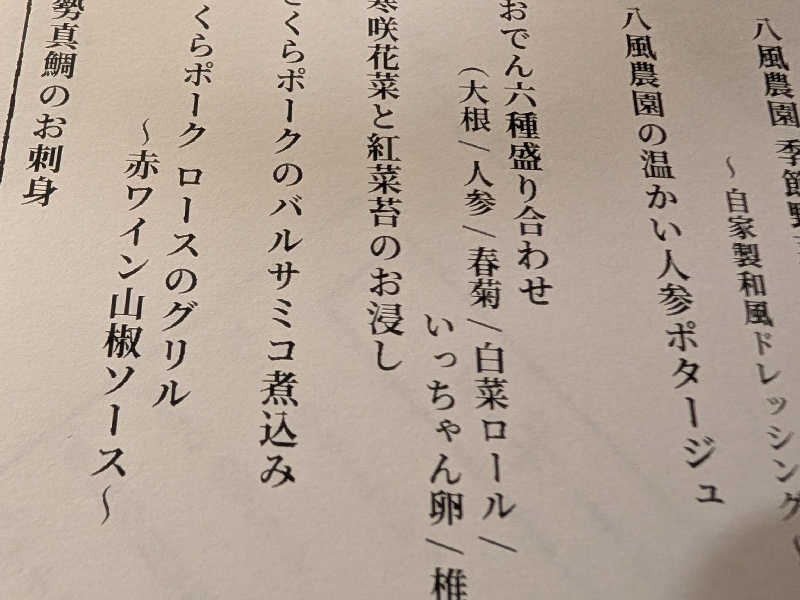 八風農園 季節野
～自家製和風ドレッシング
八風農園の温かい人参ポタージュ
おでん六種盛り合わせ
(大根/人参/春菊/白菜ロール/
いっちゃん卵/椎
寒咲花菜と紅菜苔のお浸し
さくらポークのバルサミコ煮込み
くらポーク ロースのグリル
～赤ワイン山椒ソース～
勢真鯛のお刺身